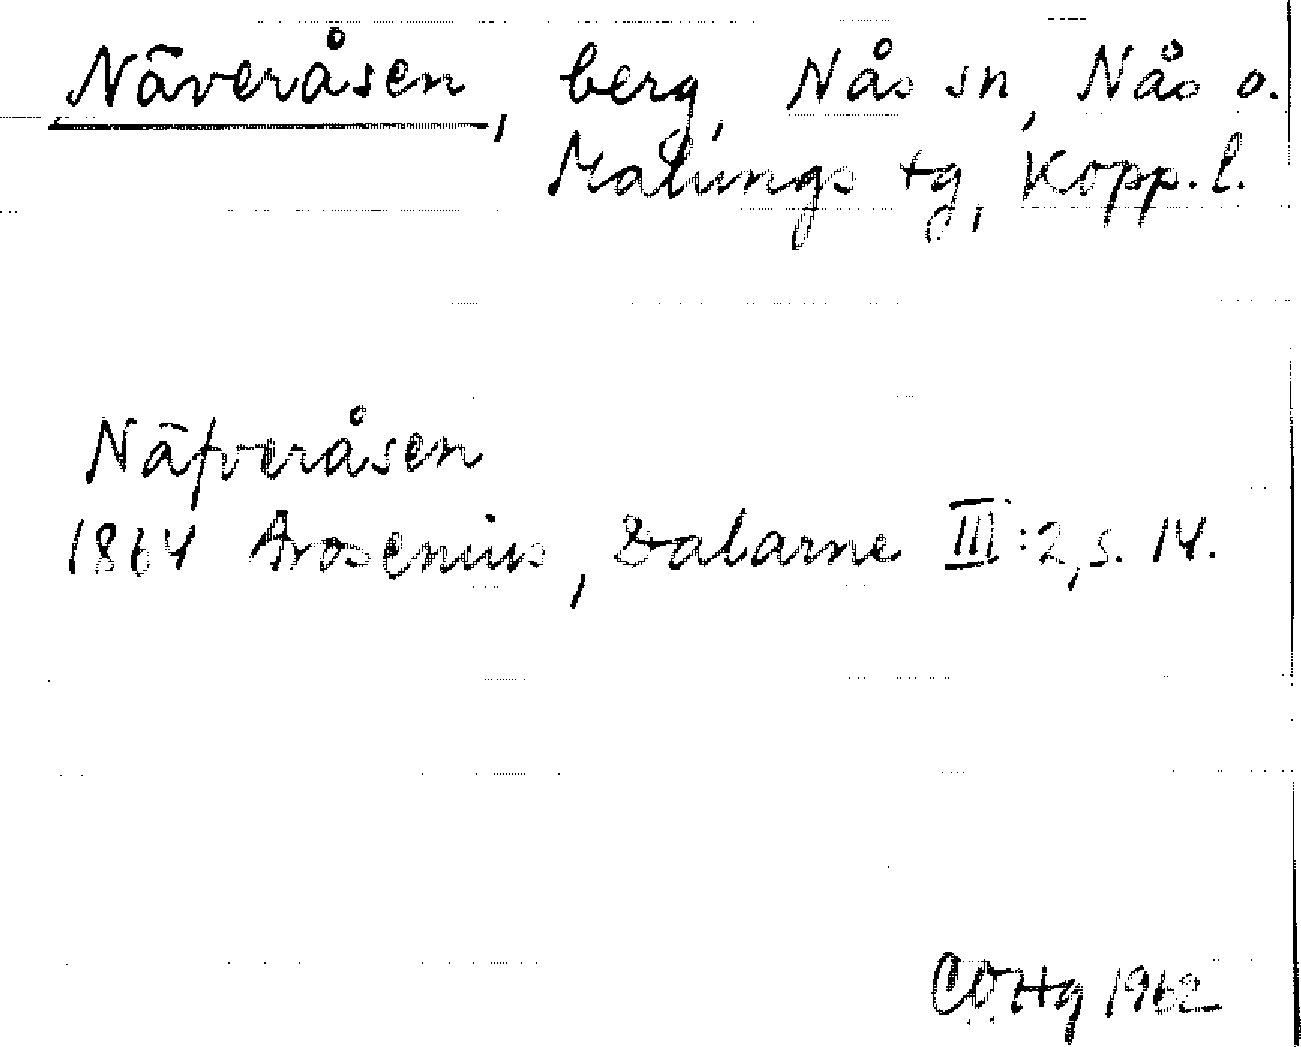 Näveråsen, berg, Nås sn, Nås o.
Malungs tg, Kopp. l.
Näfveråsen
1864 Arosenius, Dalarne III:2, s. 14.
COHg 1962